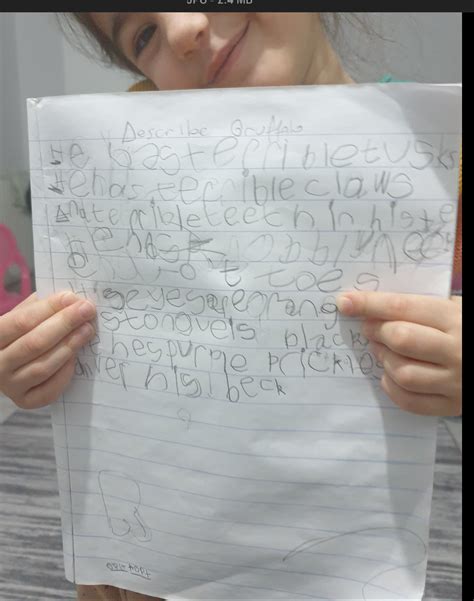 JPG - 2.4 MB
Describe Gruffalo
He has terrible tusks
He has terrible claws
And terrible teeth in his te
He has knobbly knees
t toes
His eyes are orang
s tongue is black
he s purple prickles
over his beck